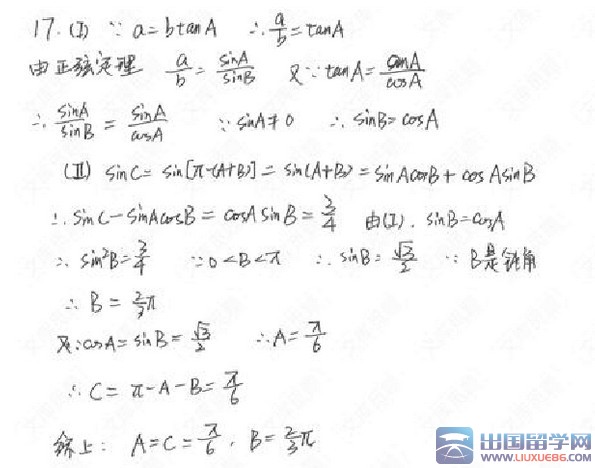 17. (I) ∵ a=btanA ∴ a/b=tanA
由正弦定理 a/b = sinA/sinB 又∵ tanA = sinA/cosA
∴ sinA/sinB = sinA/cosA ∵ sinA≠0 ∴ sinB=cosA
(II) sinC= sin[π-(A+B)] = sin(A+B) = sinAcosB + cosAsinB
∴ sinC-sinAcosB = cosAsinB = 3/4 由(I), sinB=cosA
∴ sin²B=3/4 ∵ 0<B<π ∴ sinB= √3/2 ∵ B是钝角
∴ B = 2/3π
又∵cosA=sinB= √3/2 ∴A=π/6
∴ C= π-A-B= π/6
综上: A=C=π/6, B=2/3π
出国留学网
WWW.LIUXUE86.COM